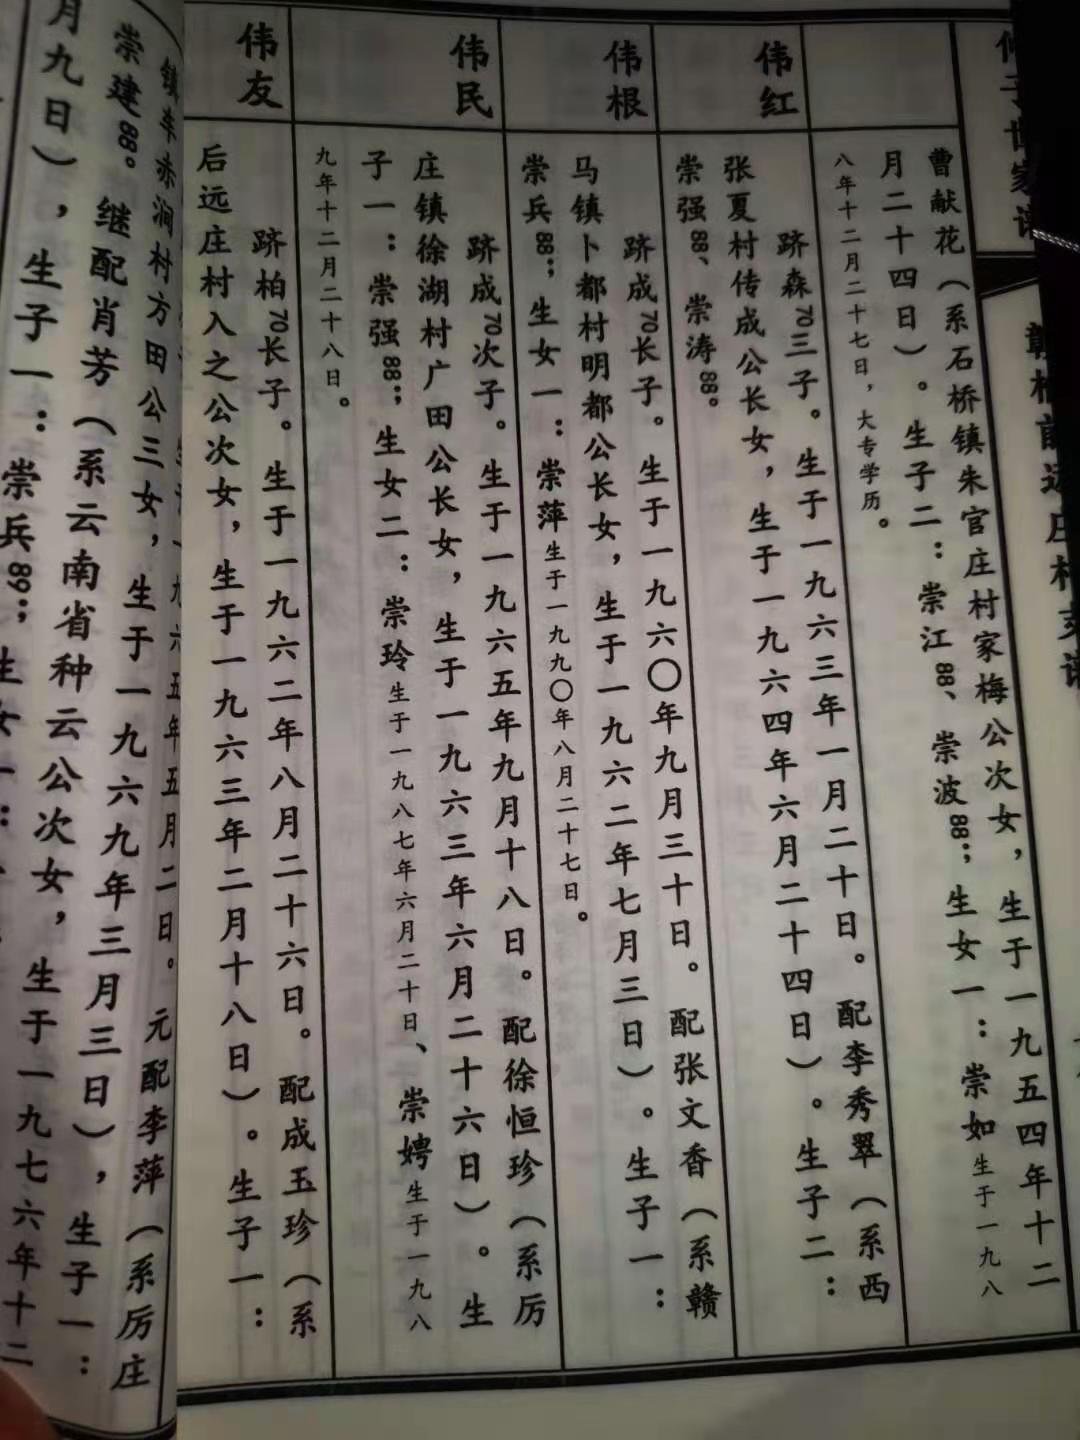 曹献花（系石桥镇朱官庄村家梅公次女，生于一九五四年十二
月二十四日）。生子二：崇江88、崇波88；生女一：崇如生于一九八
八年十二月二十七日，大专学历。
伟红
跻森70三子。生于一九六三年一月二十日。配李秀翠（系西
张夏村传成公长女，生于一九六四年六月二十四日）。生子二：
崇强88、崇涛88。
伟根
跻成70长子。生于一九六〇年九月三十日。配张文香（系赣
马镇卜都村明都公长女，生于一九六二年七月三日）。生子一：
崇兵88；生女一：崇萍生于一九九〇年八月二十七日。
伟民
跻成70次子。生于一九六五年九月十八日。配徐恒珍（系厉
庄镇徐湖村广田公长女，生于一九六三年六月二十六日）。生
子一：崇强88；生女二：崇玲生于一九八七年六月二十日、崇娉生于一九八
九年十二月二十八日。
伟友
跻柏70长子。生于一九六二年八月二十六日。配成玉珍（系
后远庄村入之公次女，生于一九六三年二月十八日）。生子一：
九六五年五月二日。元配李萍（系厉庄
镇车赤涧村方田公三女，生于一九六九年三月三日），生子一：
崇建88。继配肖芳（系云南省种云公次女，生于一九七六年十二
月九日），生子一：崇兵89；生女一：